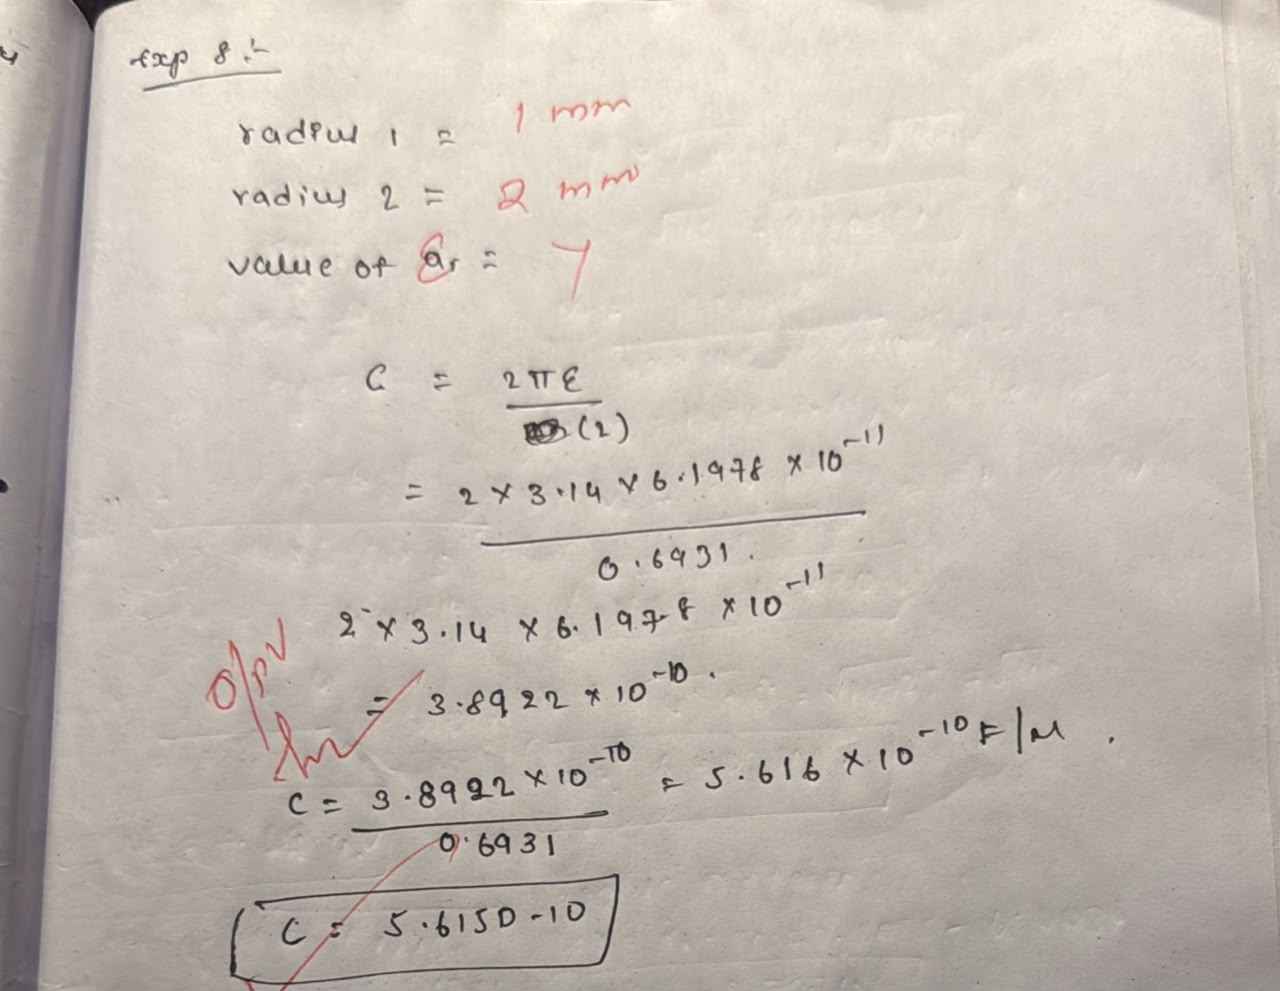 Exp 8 :-
radius 1 = 1 mm
radius 2 = 2 mm
value of εr = 7
C = 2πε
(2)
= 2 × 3.14 × 6.1978 × 10^-11
0.6931.
2 × 3.14 × 6.1978 × 10^-11
O/p
= 3.8922 × 10^-10.
C = 3.8922 × 10^-10 = 5.616 × 10^-10 F/M.
0.6931
C = 5.615D-10